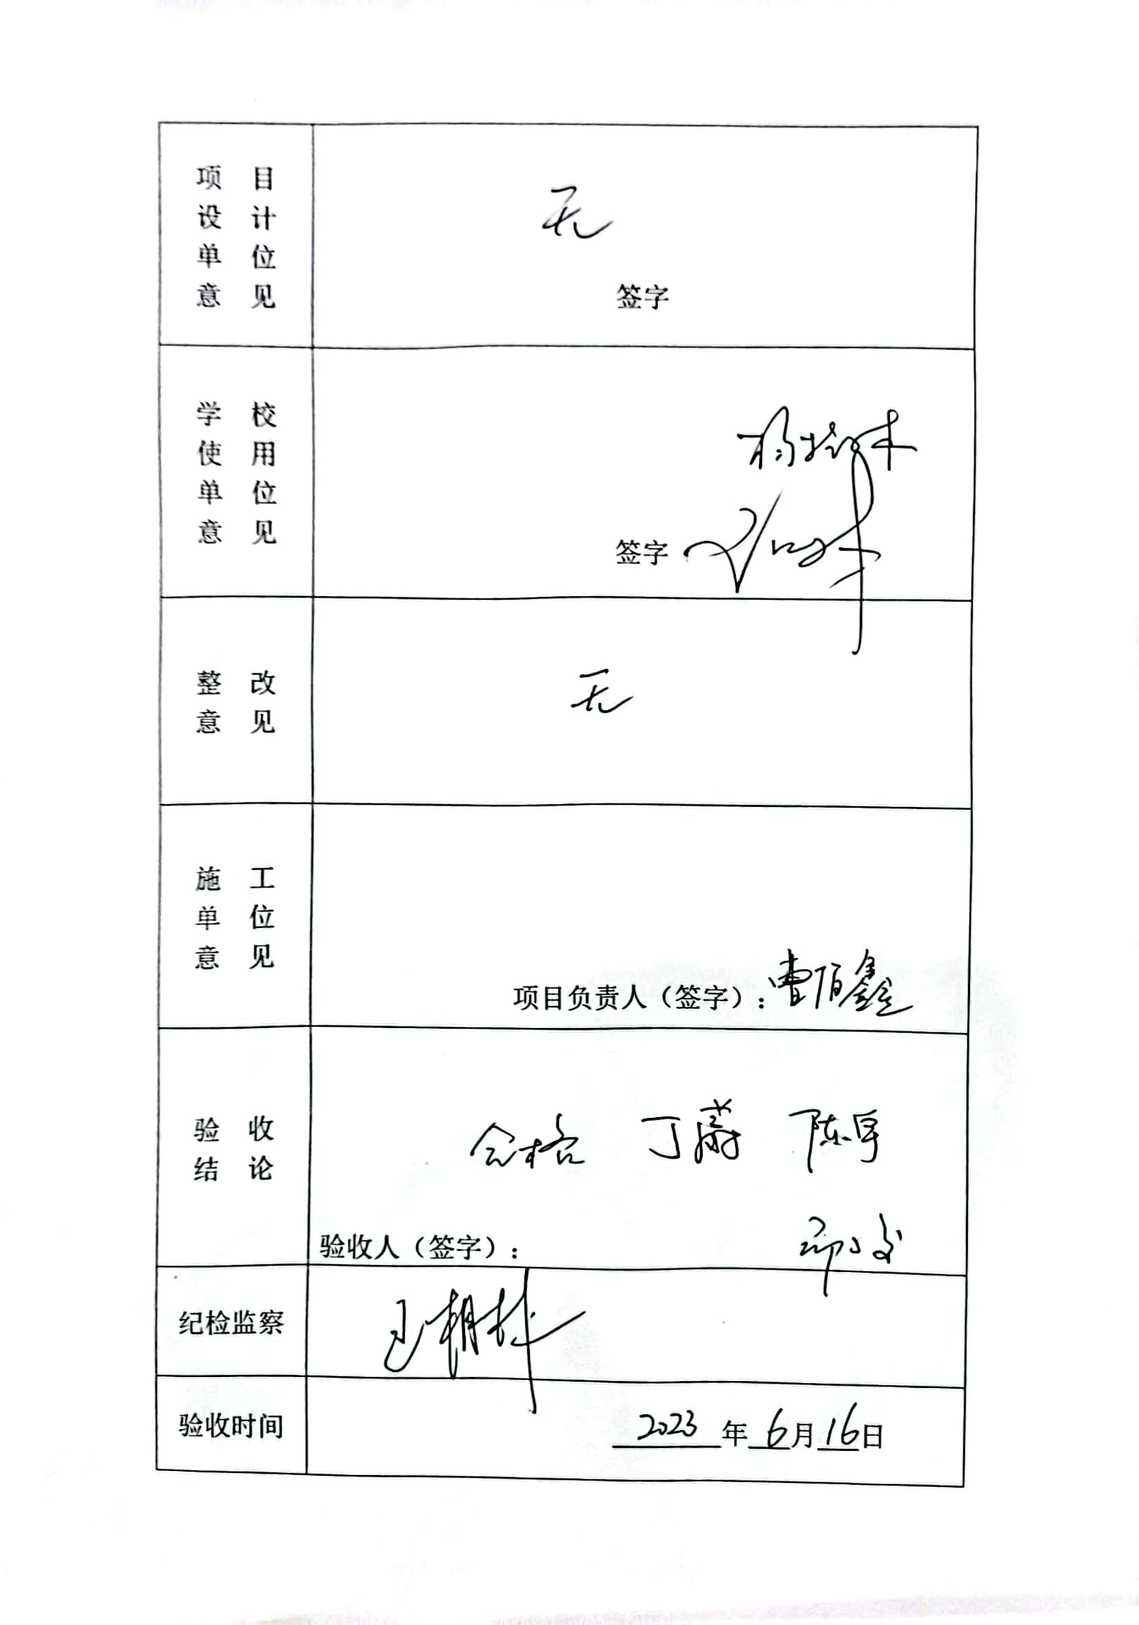 项 目
设 计
单 位
意 见
无
签字
学 校
使 用
单 位
意 见
签字
整 改
意 见
无
施 工
单 位
意 见
项目负责人（签字）：曹佰鑫
验 收
结 论
合格 丁蔚 陈军
验收人（签字）：
纪检监察
验收时间
2023 年 6 月 16 日